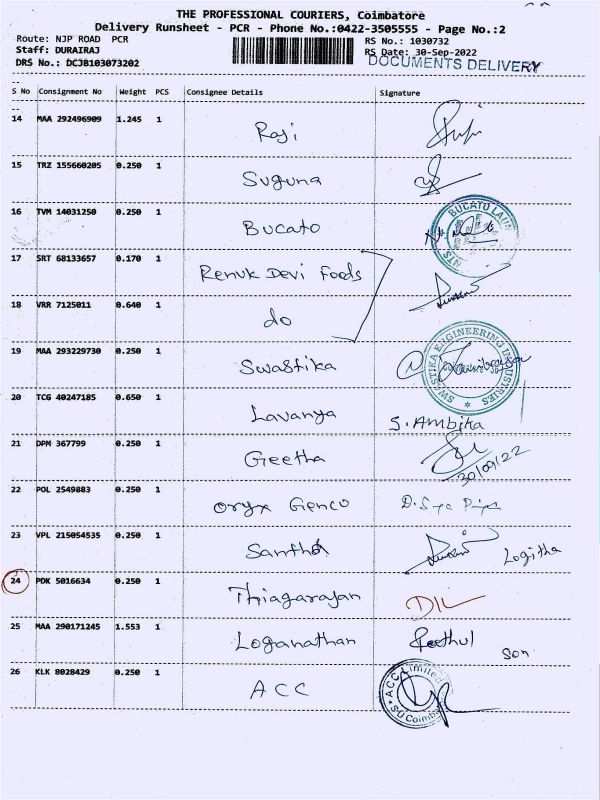 THE PROFESSIONAL COURIERS, Coimbatore
Delivery Runsheet - PCR - Phone No.:0422-3505555 - Page No.:2
Route: NJP ROAD PCR
RS No.: 1030732
Staff: DURAIRAJ
RS Date: 30-Sep-2022
DRS No.: DCJB103073202
DOCUMENTS DELIVERY
S No Consignment No Weight PCS Consignee Details Signature
14 MAA 292496909 1.245 1 Raji
15 TRZ 155660205 0.250 1 Suguna
16 TVM 14031250 0.250 1 Bucato
BUCATO
17 SRT 68133657 0.170 1 Renuk Devi Foods
18 VRR 7125011 0.640 1 do
19 MAA 293229730 0.250 1 Swastika
SWASTIKA ENGINEERING INDUSTRIES
20 TCG 40247185 0.650 1 Lavanya S. Ambika
21 DPM 367799 0.250 1 Geetha
30/09/22
22 POL 2549883 0.250 1 Oryx Genco
23 VPL 215054535 0.250 1 Logitha
24 PDK 5016634 0.250 1 Thiagarajan
25 MAA 290171245 1.553 1 Loganathan Son
26 KLK 8028429 0.250 1 ACC
ACC Limited